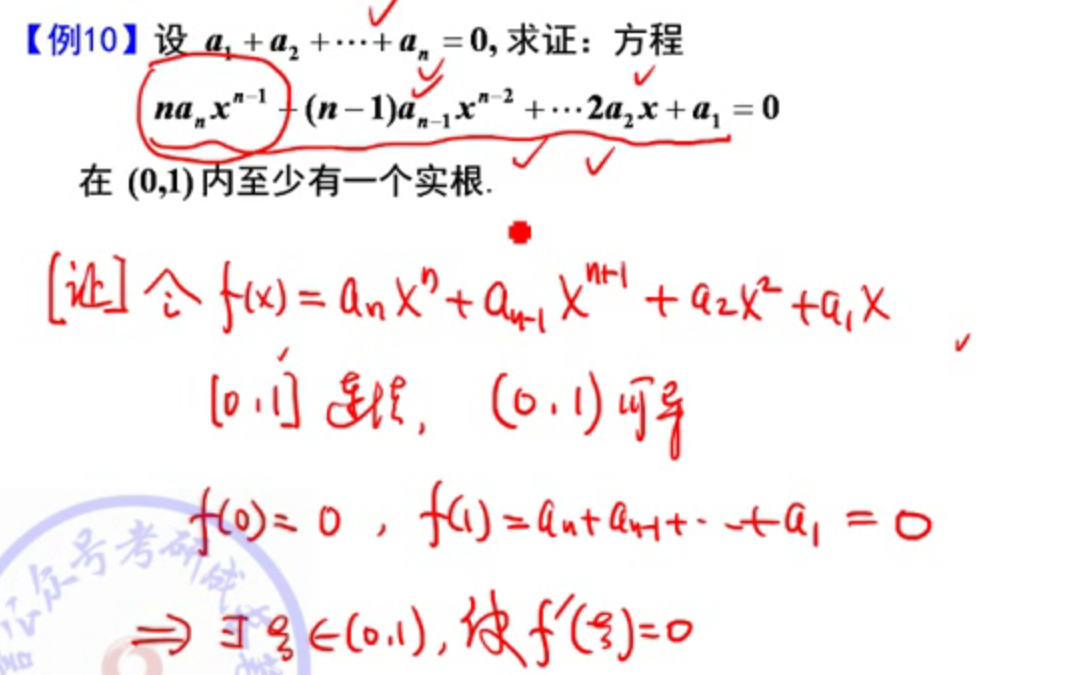 【例10】设 a₁ + a₂ + ⋯ + aₙ = 0, 求证：方程
naₙxⁿ⁻¹ + (n−1)aₙ₋₁xⁿ⁻² + ⋯2a₂x + a₁ = 0
在 (0,1) 内至少有一个实根.
[证] 令 f(x) = aₙxⁿ + aₙ₋₁xⁿ⁺¹ + a₂x² + a₁x
[0,1] 连续, (0,1) 可导
f(0) = 0, f(1) = aₙ + aₙ₋₁ + ⋯ + a₁ = 0
⇒ ∃ ξ ∈ (0,1), 使 f′(ξ) = 0
公众号考研试